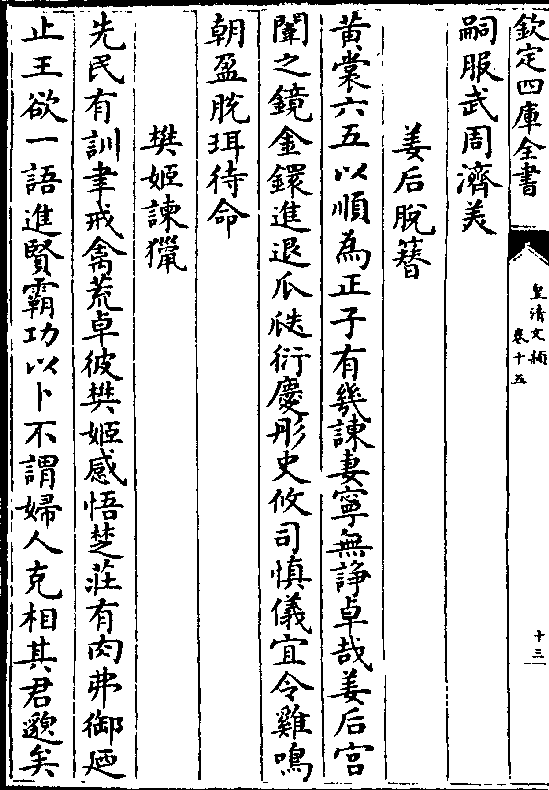 欽定四庫全書
皇清文穎
卷十五
十三
嗣服武周濟美
姜后脫簪
黃裳六五以順為正子有幾諫妻寧無諍卓哉姜后宮
闈之鏡金鐶進退瓜瓞衍慶彤史攸司慎儀宜令雞鳴
朝盈脫珥待命
樊姬諫獵
先民有訓聿戒禽荒卓彼樊姬感悟楚莊有肉弗御廼
止王欲一語進賢霸功以卜不謂婦人克相其君邈矣